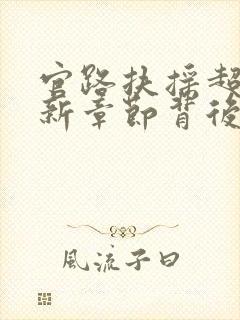 官路扶摇超
新章節背後
風流子曰